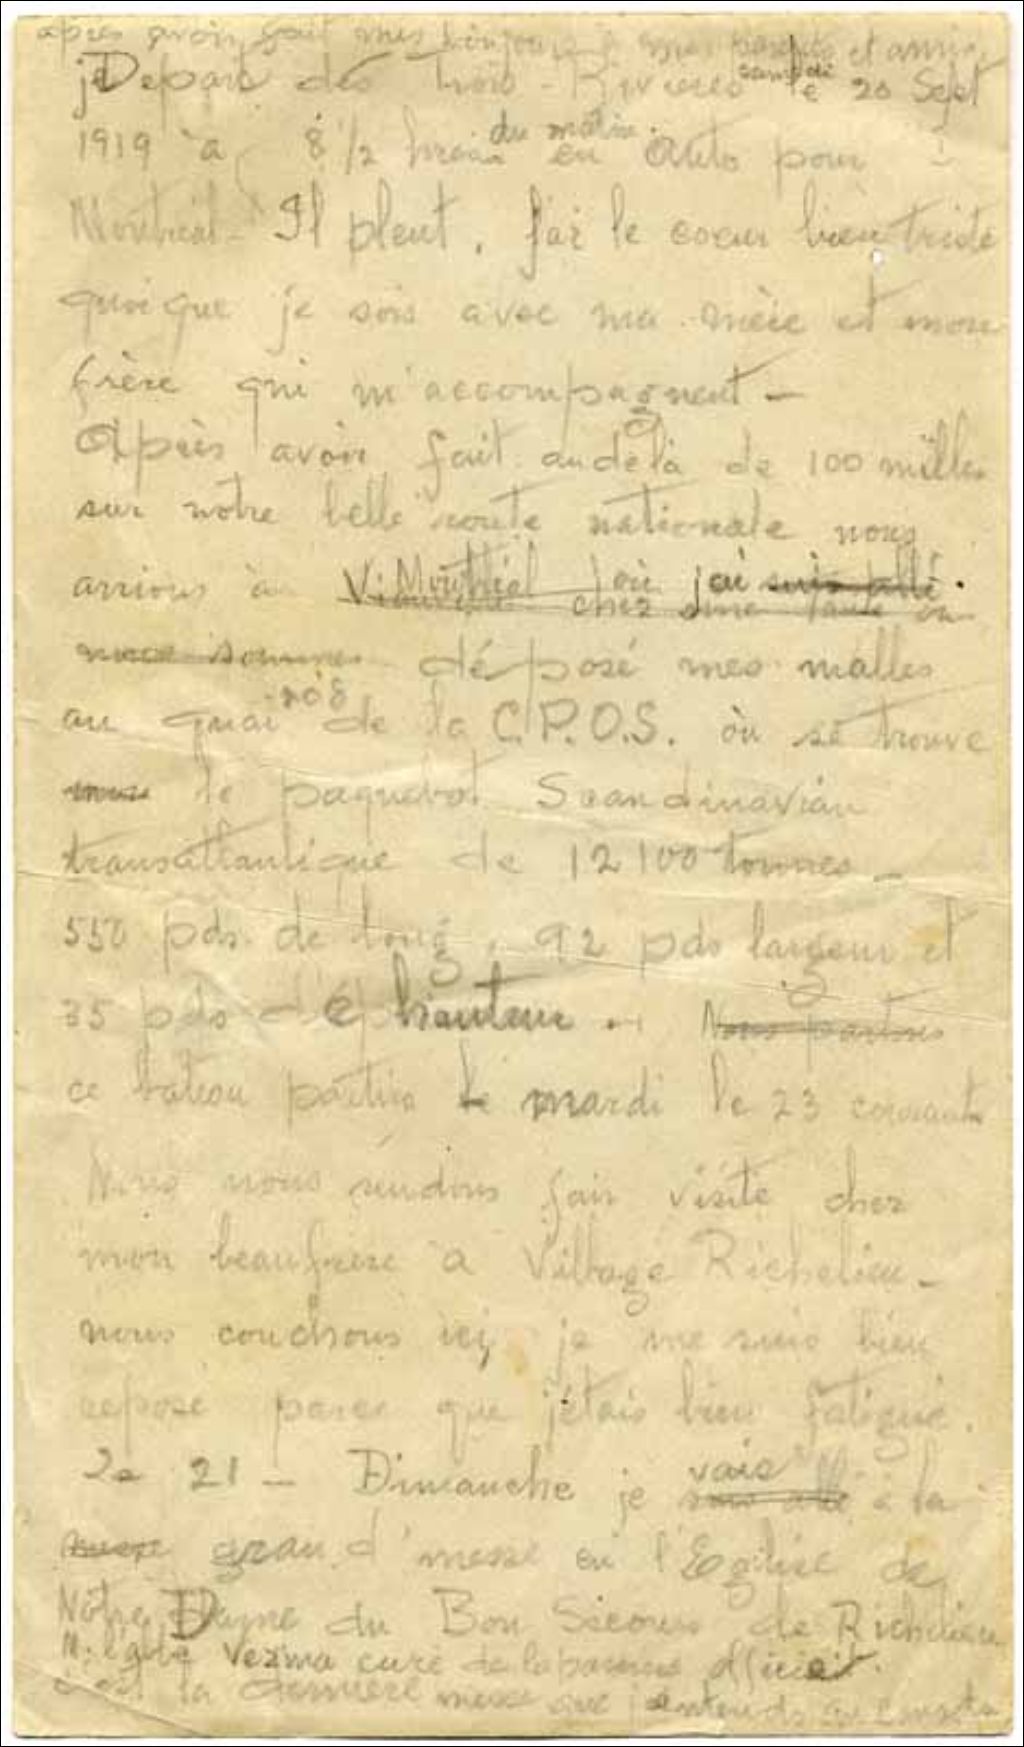 après avoir fait mes bonjours à mes parents et amis
je Depart des Trois-Rivieres samedi le 20 Sept
1919 à 8 1/2 hres du matin. en auto pour
Montréal - Il pleut, j'ai le coeur bien triste
quoique je sois avec ma mère et mon
frère qui m'accompagnent -
Après avoir fait audela de 100 milles
sur notre belle route nationale nous
arrivons à Montréal où j'ai suis allé
chez une tante
déposé mes malles
au quai no 8 de la C.P.O.S. où se trouve
le paquebot Scandinavian
transatlantique de 12100 tonnes -
550 pds. de long, 92 pds largeur et
35 pds de hauteur. Nous partons
ce bateau partira le mardi le 23 courant
Nous nous rendons fair visite chez
mon beaufrère à Village Richelieu -
nous couchons ici, je me suis bien
reposé parce que j'étais bien fatigué.
Le 21 - Dimanche je vais suis allé à la
messe grand'messe en l'Eglise de
Notre Dame du Bon Secours de Richelieu
M. l'abbé curé de la paroisse
c'est la dernière messe que j'entends au